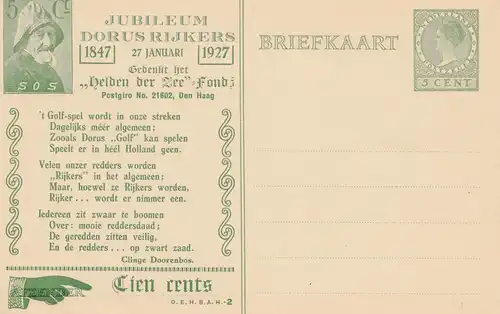 5 Ct
SOS
JUBILEUM
DORUS RIJKERS
1847 27 JANUARI 1927
Gedenkt het
„Helden der Zee"-Fonds
Postgiro No. 21602, Den Haag
't Golf-spel wordt in onze streken
Dagelijks méér algemeen;
Zooals Dorus „Golf" kan spelen
Speelt er in héél Holland geen.
Velen onzer redders worden
„Rijkers" in het algemeen;
Maar, hoewel ze Rijkers worden,
Rijker... wordt er nimmer een.
Iedereen zit zwaar te boomen
Over: mooie reddersdaad;
De geredden zitten veilig,
En de redders... op zwart zaad.
Clinge Doorenbos.
AFZENDER
Tien cents
O. E. H. B. A. H. - 2
BRIEFKAART
5 CENT